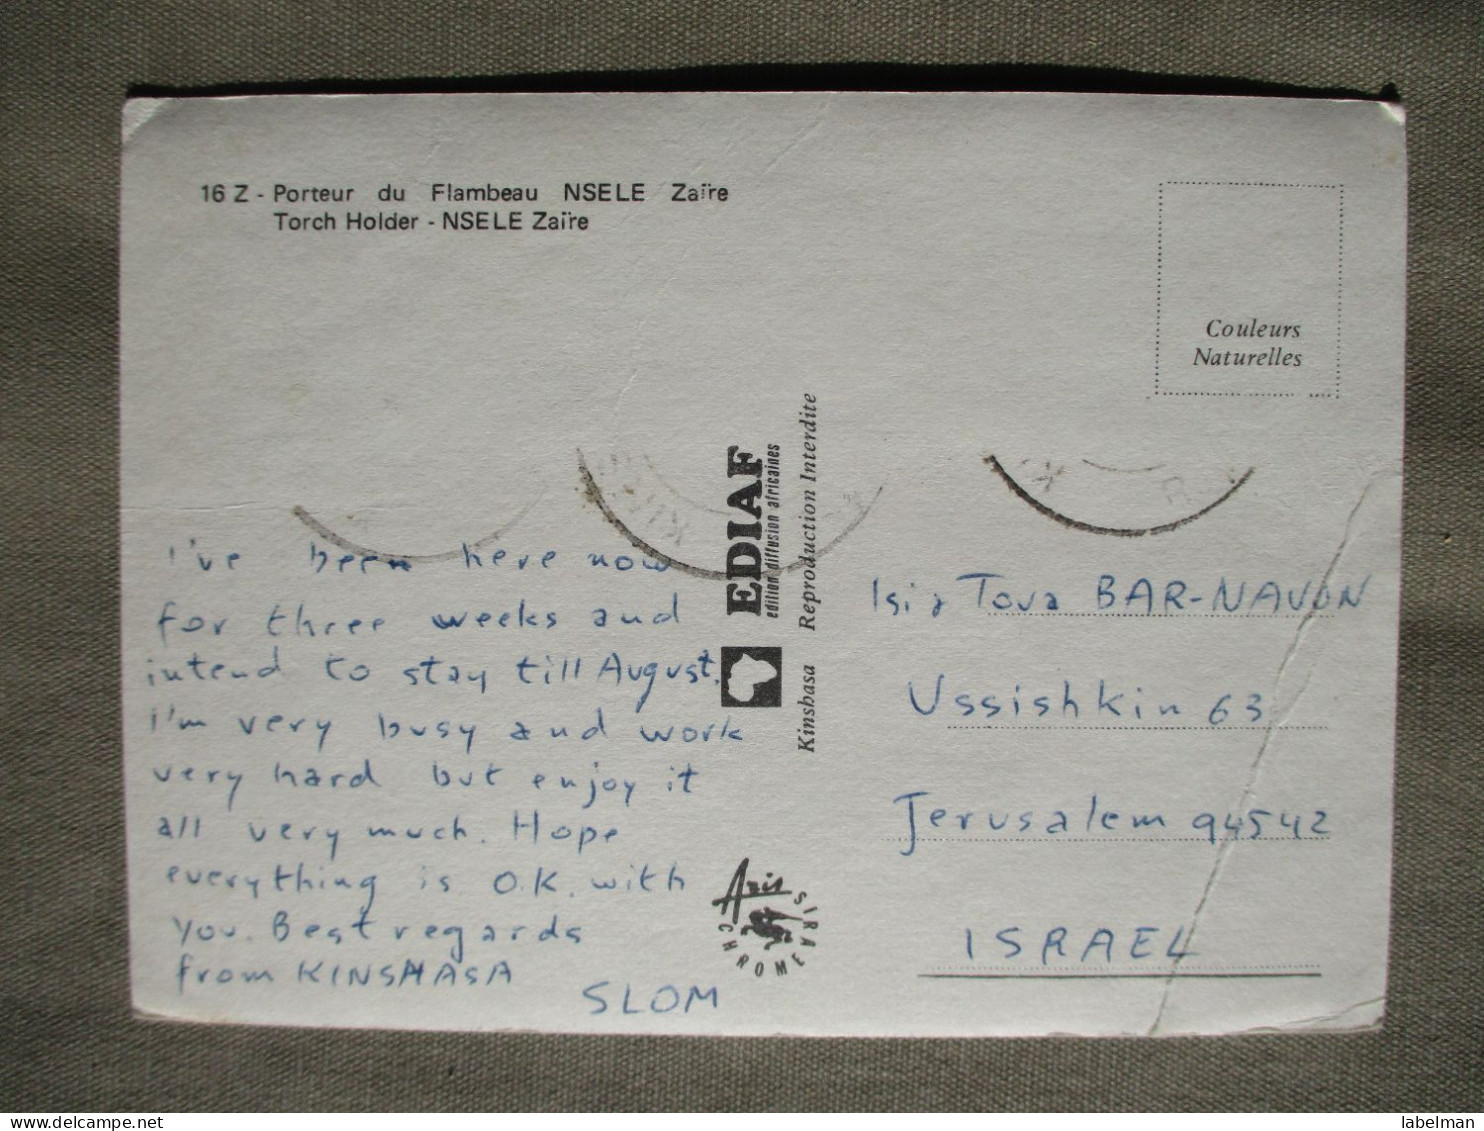 16 Z - Porteur du Flambeau NSELE Zaïre
Torch Holder - NSELE Zaïre
Couleurs
Naturelles
I've been here now
for three weeks and
intend to stay till August.
I'm very busy and work
very hard but enjoy it
all very much. Hope
everything is O.K. with
you. Best regards
from KINSHASA
SLOM
EDIAF
edition diffusion africaines
Kinshasa Reproduction Interdite
SIRA
CHROME
Tova BAR-NAVON
Ussishkin 63
Jerusalem 94542
ISRAEL
delcampe.net
labelman